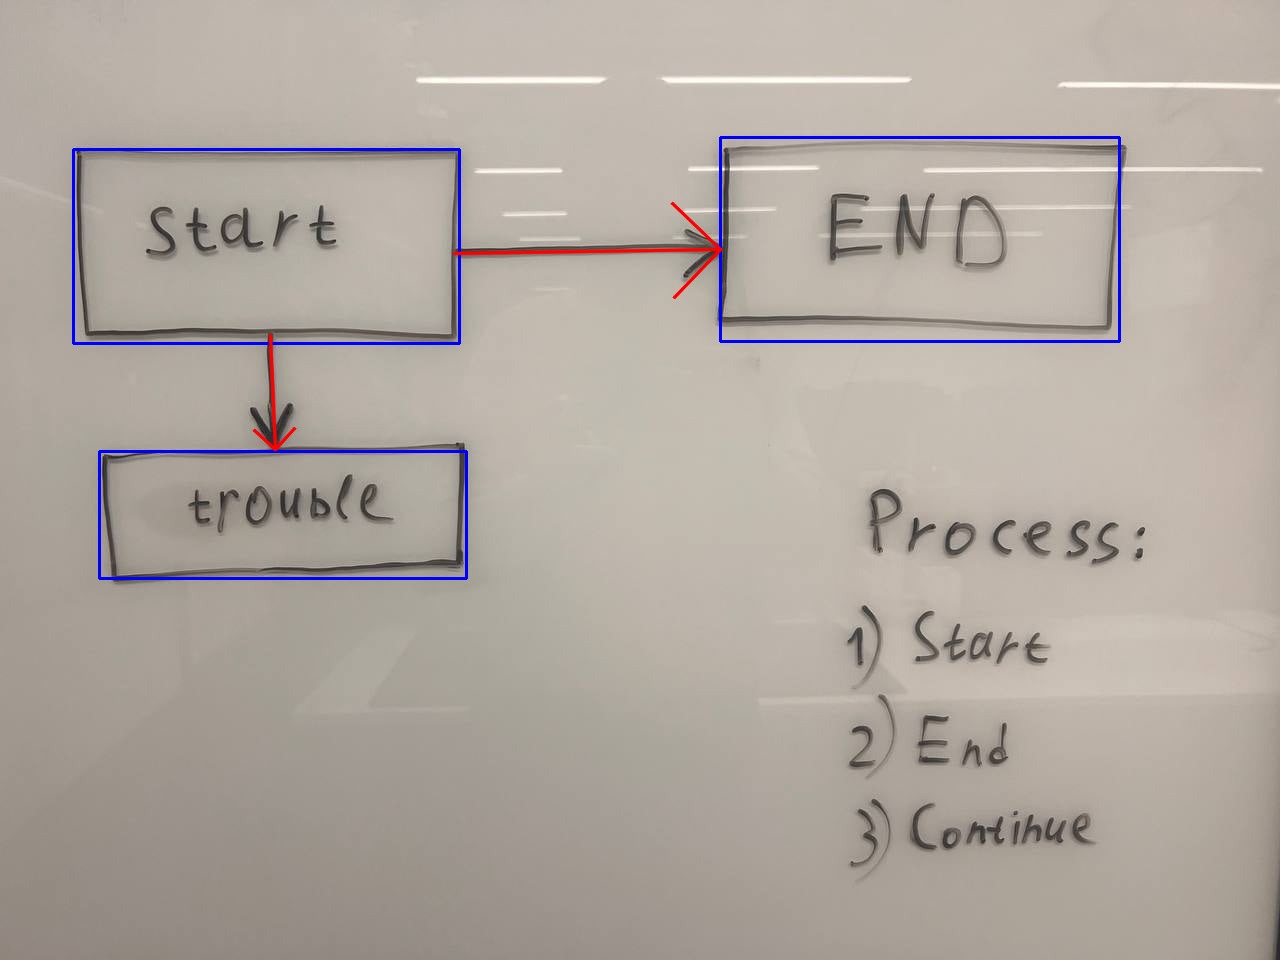 Start
END
trouble
Process:
1) Start
2) End
3) Continue